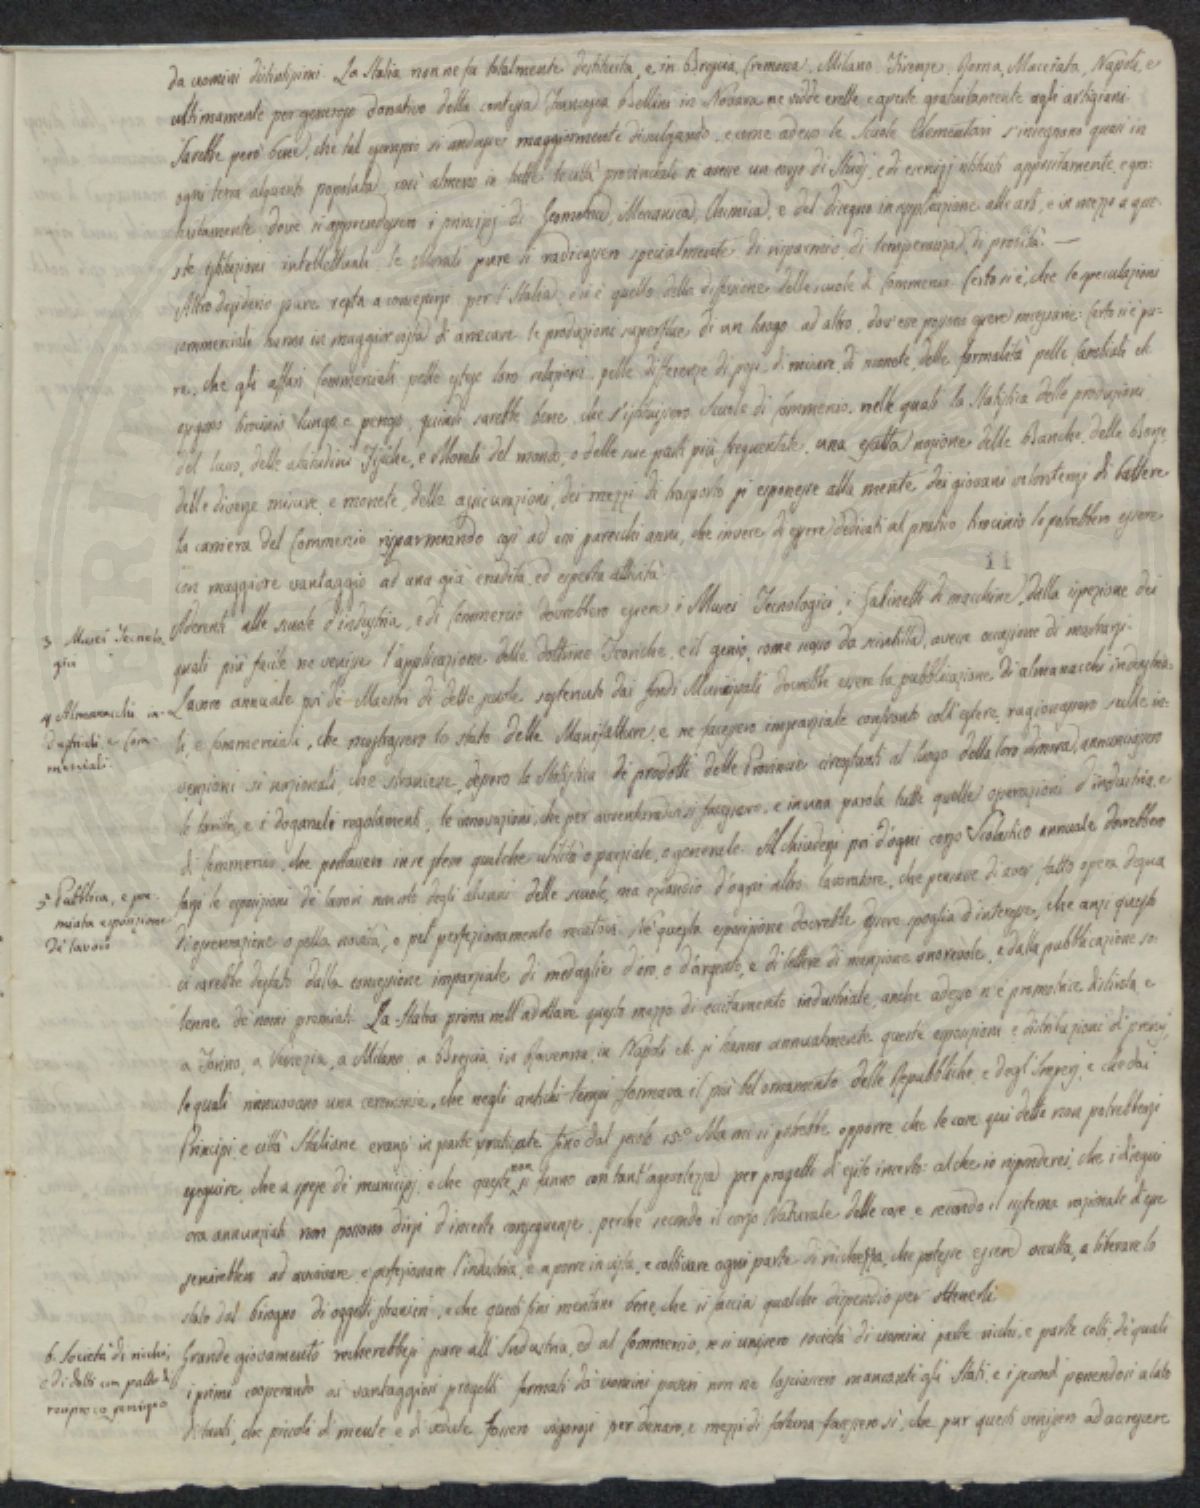 da uomini distintissimi. La Italia non ne fu totalmente destituita, e in Brescia, Cremona, Milano, Firenze, Roma, Macerata, Napoli, e
ultimamente per generoso donativo della contessa Bellini in Novara ne vidde erette e aperte gratuitamente agli artigiani.
Sarebbe però bene, che tal esempio si andasse maggiormente divulgando, e come adesso le Scuole Elementari s'insegnano quasi in
ogni terra alquanto popolata, così almeno in tutte le città provinciali si avesse un corso di Studj, e di esercizj istituiti appositamente, e gra=
tuitamente, dove si apprendessero i principj di Geometria, Meccanica, Chimica, e del disegno in applicazione alle arti, e in mezzo a que=
ste istituzioni intellettuali le Morali pure si radicassero specialmente di risparmio, di temperanza, di probità. —
Altro desiderio pure resta a conseguirsi per l'Italia, ed è quello della diffusione delle scuole di Commercio. Certo si è, che le speculazioni
commerciali hanno in maggior vista di arrecare le produzioni superflue di un luogo ad altro, dov'esse possono essere necessarie: Certo si è pu=
re, che gli affari Commerciali pelle estese loro relazioni, pelle differenze di pesi, di misure, di monete, delle formalità pelle Cambiali ec.
esigono tirocinio lungo e penoso, quindi sarebbe bene, che s'istituissero Scuole di Commercio, nelle quali la Statistica delle produzioni
del suolo, delle attitudini Fisiche, e Morali del mondo, o delle sue parti più frequentate, una esatta nozione delle Banche, delle Borse,
delle diverse misure, e monete, delle assicurazioni, dei mezzi di trasporto si esponesse alla mente dei giovani volonterosi di battere
la carriera del Commercio risparmiando così ad essi parecchi anni, che invece di essere dedicati al pratico tirocinio lo potrebbero essere
con maggiore vantaggio ad una già erudita, ed esperta attività.
11
3. Musei Tecnolo
gici
Aderenti alle scuole d'industria, e di Commercio dovrebbero essere i Musei Tecnologici, i Gabinetti di macchine, dalla ispezione dei
quali più facile ne venisse l'applicazione delle dottrine Teoriche, e il genio, come fuoco da scintilla, avesse occasione di mostrarsi.
4. Almanacchi in=
dustriali e Com=
merciali.
Lavoro annuale poi de' Maestri di dette scuole sostenuto dai fondi Municipali dovrebbe essere la pubblicazione di almanacchi industria=
li, e Commerciali, che mostrassero lo stato delle Manifatture, e ne facessero imparziale confronto coll'estere, ragionassero sulle in=
venzioni sì nazionali, che straniere, dessero la Statistica de' prodotti delle Provincie circostanti al luogo della loro dimora, annunziassero
le tariffe, e i doganali regolamenti, le innovazioni, che per avventura si facessero, e in una parola tutte quelle operazioni d'industria, e
di Commercio, che portassero in se stesse qualche utilità o parziale, o generale. Al chiudersi poi d'ogni corso Scolastico annuale dovrebbero
5.a Pubblica, e pre=
miata esposizione
de' lavori
farsi le esposizioni de' lavori non solo degli alunni delle scuole, ma eziandio d'ogni altro lavoratore, che pensasse di aver fatto opera degna
di osservazione o pella novità, o pel perfezionamento recatovi. Nè questa esposizione dovrebbe essere spoglia d'interesse, che anzi questo
ci sarebbe destato dalla concessione imparziale di medaglie d'oro, o d'argento, e di lettere di menzione onorevole, e dalla pubblicazione so=
lenne de' nomi premiati. La Italia prima nell'adottare questo mezzo di eccitamento industriale, anche adesso n'è promotrice distinta, e
a Torino, a Venezia, a Milano, a Brescia, in Ravenna, in Napoli ec. si hanno annualmente queste esposizioni e distribuzioni di premj,
le quali rinnuovano una ceremonia, che negli antichi tempi formava il più bel ornamento delle Repubbliche, e degl'Imperj, e che dai
Principi, e città Italiane eransi in parte praticate fino dal secolo 15.o Ma mi si potrebbe opporre che le cose qui dette non potrebbersi
eseguire, che a spese de' municipj, e che queste non si fanno con tant'agevolezza per progetti d'esito incerto: al che io risponderei, che i disegni
ora annunziati non possono dirsi d'incerte conseguenze, perchè secondo il corso Naturale delle cose, e secondo il sistema razionale d'esse
servirebbero ad avvivare e perfezionare l'industria, e a porre in vista, e coltivare ogni parte di ricchezza, che potesse essere occulta, a liberare lo
stato dal bisogno di oggetti stranieri, e che questi fini meritano bene, che si faccia qualche dispendio per ottenerli.
6. Società di ricchi,
e di dotti con patto di
reciproco servigio
Grande giovamento recherebbesi pure all'Industria, ed al Commercio, se si unissero società di uomini parte ricchi, e parte colti, de' quali
i primi cooperando ai vantaggiosi progetti formati da uomini poveri non ne lasciassero mancante gli Stati, e i secondi ponendosi a lato
di tanti, che piccoli di mente e di vedute fossero vigorosi per denaro, e mezzi di fortuna facessero sì, che pur questi venissero ad accrescere